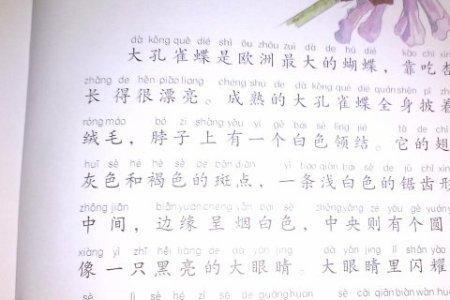 dà kǒng què dié shì ōu zhōu zuì dà de hú dié kào chī xìn
大孔雀蝶是欧洲最大的蝴蝶，靠吃杏
zhǎng de hěn piào liang chéng shú de dà kǒng què dié quán shēn pī
长得很漂亮。成熟的大孔雀蝶全身披着
róng máo bó zi shàng yǒu yí gè bái sè lǐng jié tā de chì
绒毛，脖子上有一个白色领结。它的翅
huī sè hé hè sè de bān diǎn yì tiáo qiǎn bái sè de jù chǐ xín
灰色和褐色的斑点，一条浅白色的锯齿形
zhōng jiān biān yuán chéng yān bái sè zhōng yāng zé yǒu gè yuán
中间，边缘呈烟白色，中央则有个圆
xiàng yì zhī hēi liàng de dà yǎn jing dà yǎn jing lǐ shǎn yào
像一只黑亮的大眼睛。大眼睛里闪耀